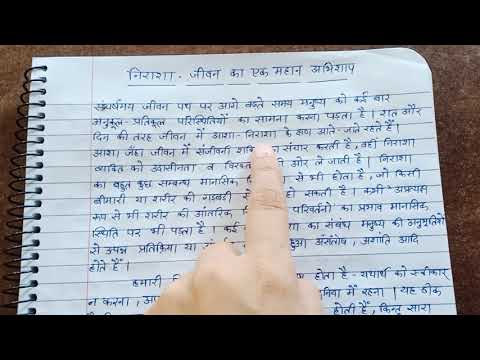 निराशा - जीवन का एक महान अभिशाप
संघर्षमय जीवन पथ पर आगे बढ़ते समय मनुष्य को कई बार
अनुकूल-प्रतिकूल परिस्थितियों का सामना करना पड़ता है। रात और
दिन की तरह जीवन में आशा-निराशा के क्षण आते-जाते रहते हैं।
आशा जहाँ जीवन में संजीवनी का संचार करती है, वहीं निराशा
व्यक्ति को उदासीनता व की ओर ले जाती है। निराशा
का बहुत कुछ सम्बन्ध मानसिक, से भी होता है, जो किसी
बीमारी या शरीर की गड़बड़ी हो सकती है। कभी अप्रत्यक्ष
रूप से भी शरीर की आंतरिक, परिवर्तनों का प्रभाव मानसिक
स्थिति पर भी पड़ता है। कई का संबंध मनुष्य की अनुभूतियों
से उत्पन्न प्रतिक्रिया या हुआ असंतोष, अशांति आदि
होते हैं।
हमारी होता है - यथार्थ को स्वीकार
न करना, में रहना। यह ठीक
होती हैं, किन्तु सारा